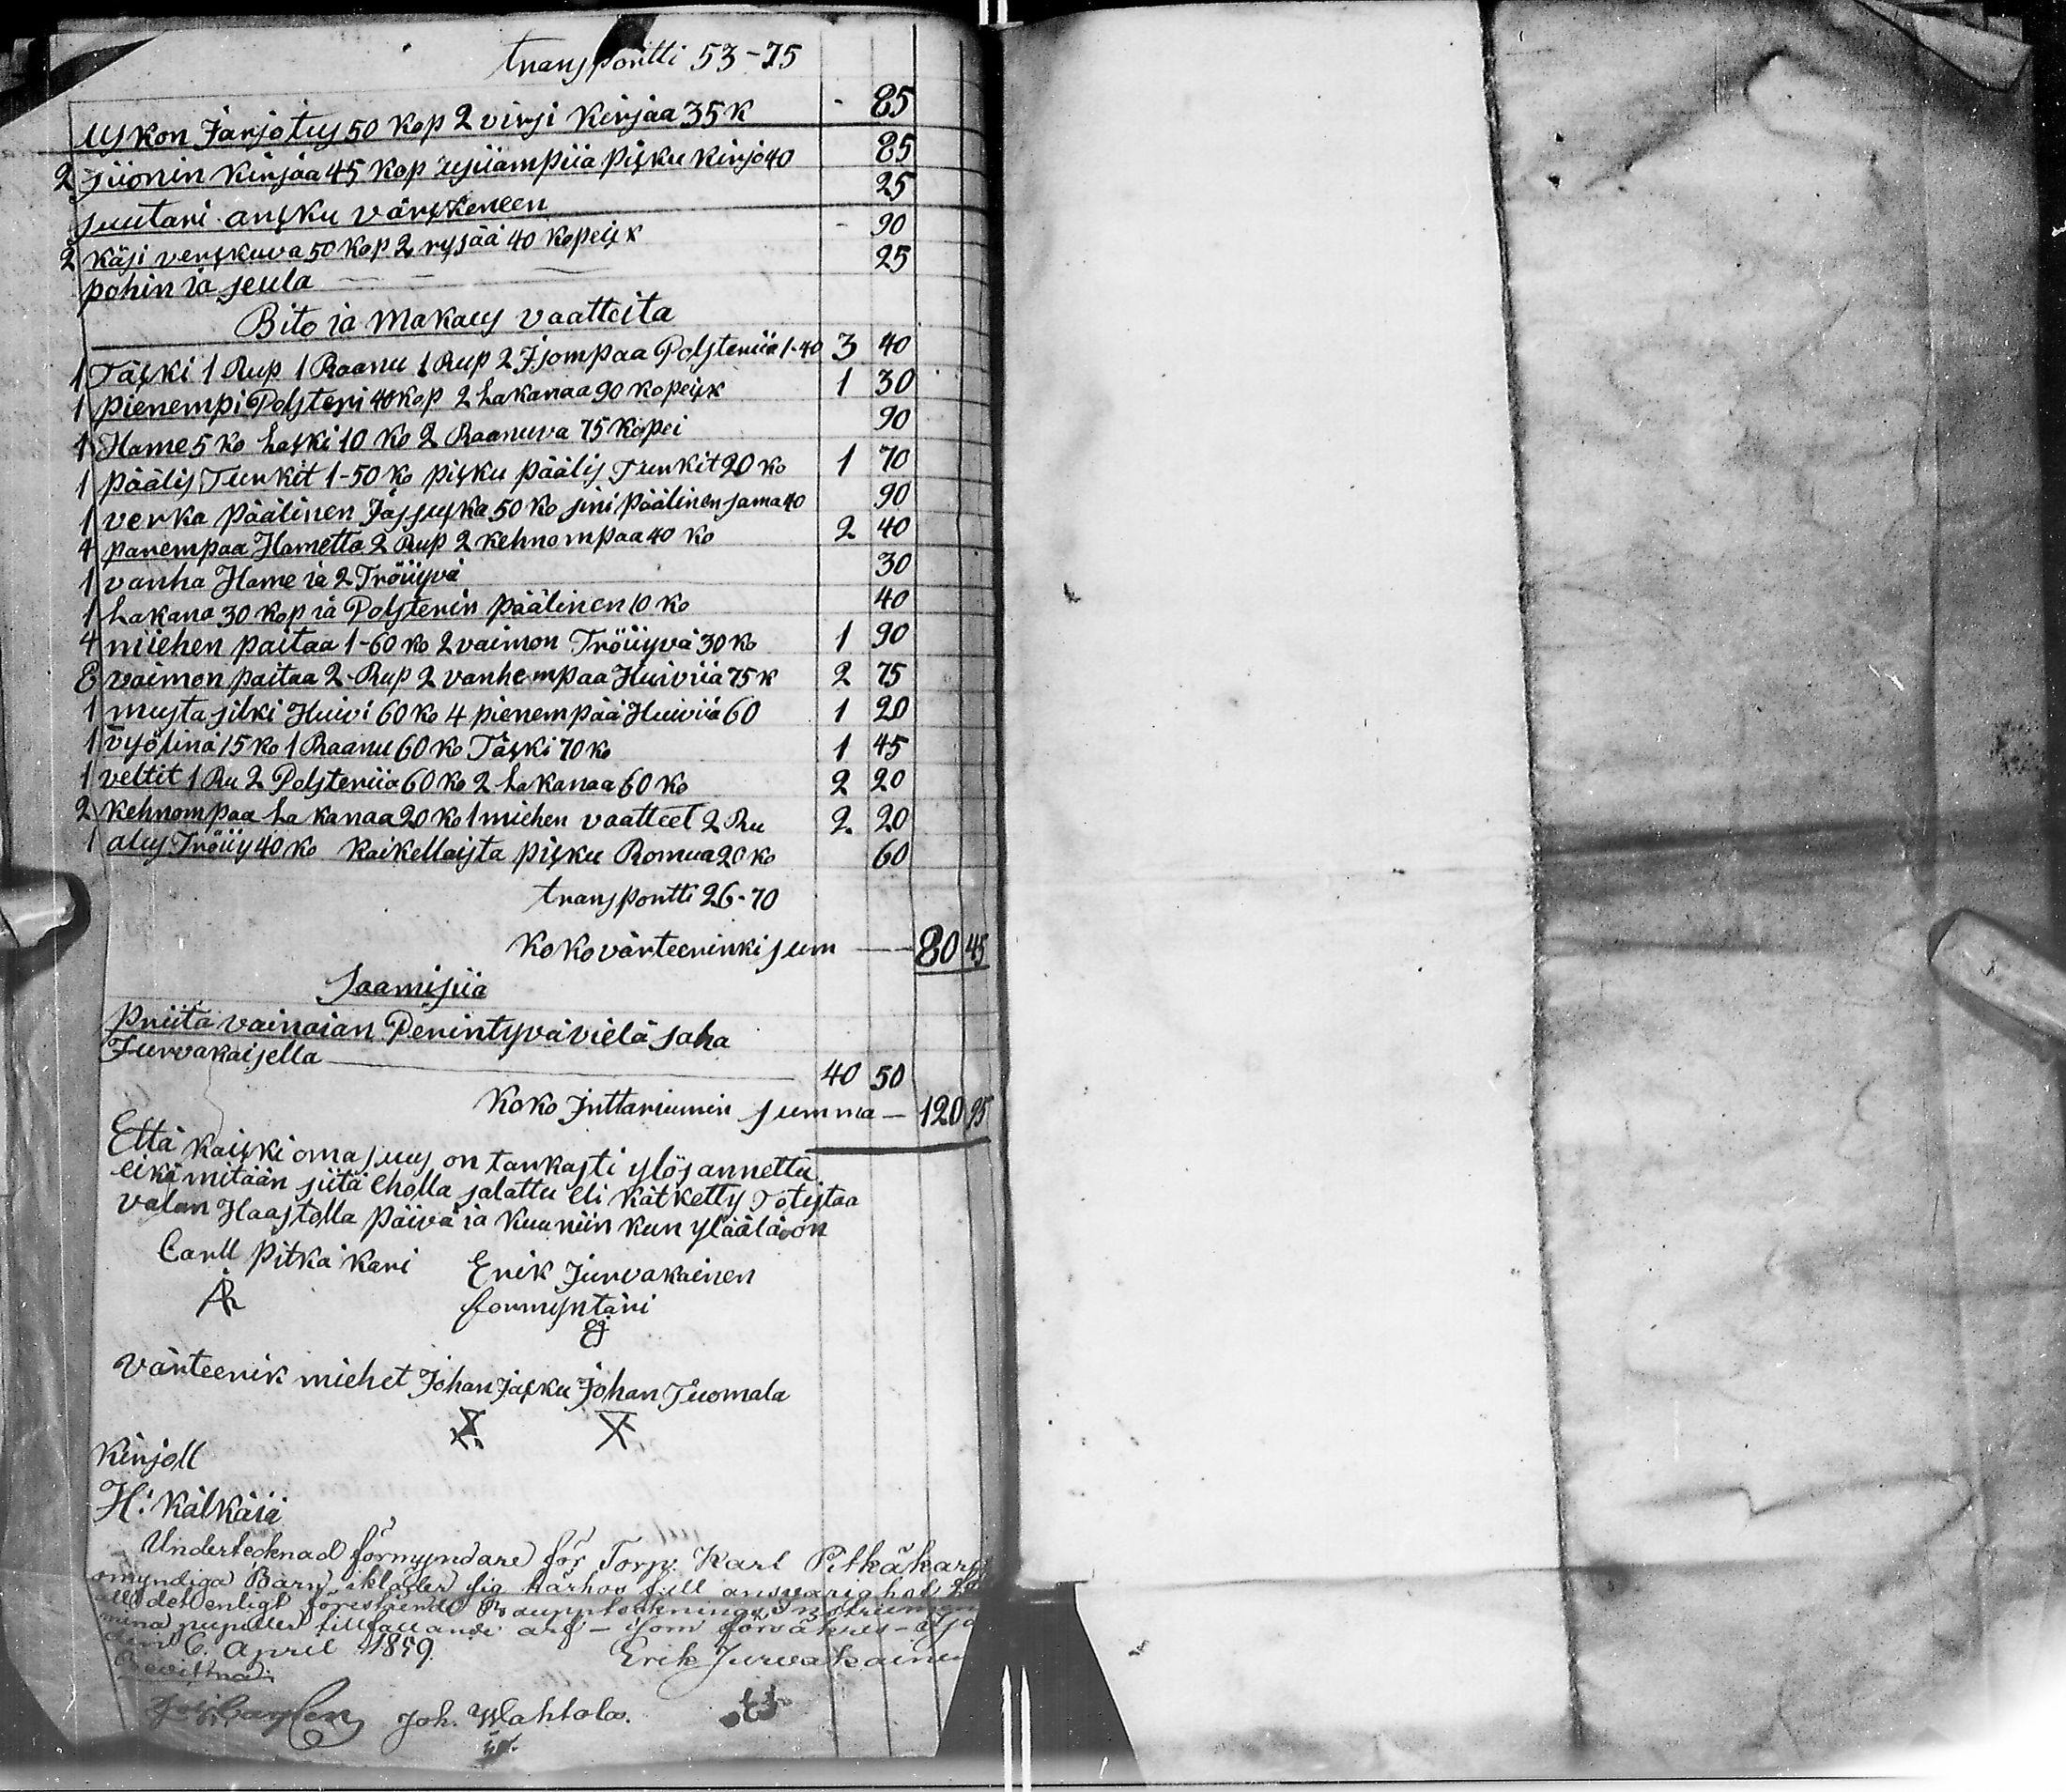 transportti 53-75
uskon Jarjotus 50 kop 2 virsi kirjaa 35 k - 85
2 siionin kirjaa 45 kop usiiampiia pisku kirjo 40 85
suutari arsku värskeneen 25
2 käsi verskuva 50 kop 2 rysää 40 kopeisk - 90
pohin ia seula 25
Bito ia Makaus vaatteita
1 Täski 1 Rup 1 Raanu 1 Rup 2 Isompaa Polsteriia 1-40 3 40
1 pienempi Polsteri 40 kop 2 hakanaa 90 kopeisk 1 30
1 Hame 5 ko haski 10 ko 2 Raanuva 75 kopei 90
1 päälis Turkit 1-50 ko pisku päälis Turkit 20 ko 1 70
1 verka päälinen Jässyska 50 ko sini päälinen sama 40 90
4 parempaa Hametta 2 Rup 2 kehnompaa 40 ko 2 40
1 vanha Hame ia 2 Tröüyvä 30
1 hakana 30 kop ia Polsterin päälinen 10 ko 40
4 miehen paitaa 1-60 ko 2 vaimon Tröüyvä 30 ko 1 90
8 vaimon paitaa 2-Rup 2 vanhempaa Huiviia 75 k 2 75
1 musta silki Huivi 60 ko 4 pienempää Huiviia 60 1 20
1 vyölinä 15 ko 1 Raanu 60 ko Täski 70 ko 1 45
1 veltit 1 Ru 2 Polsteriia 60 ko 2 hakanaa 60 ko 2 20
2 kehnompaa hakanaa 20 ko 1 miehen vaatteet 2 Ru 2 20
1 alus Tröüy 40 ko kaikellaista pisku Romua 20 ko 60
transportti 26-70
koko värteerinki sum — 80 45
Saamisiia
priita vainaian Perintyvä vielä saha
Jurvakaisella 40 50
koko Inttariumin summa — 120 95
Että kaiski omasuus on tarkasti ylösannettu
eikä mitään siitä eholla salattu eli kätketty Totistaa
valan Haastolla päivä ia kuu niin kun yläälä on
Carll Pitkä kari Erik Jurvakainen
formyntäri
värteerik miehet Johan Jasku Johan Tuomala
kirjoll
H: kälkäiä
Undertecknad förmyndare för Torp. Karl Pitkäkari
omyndiga Barn ikläder sig härhos till ansvarighet
allt det enligt förestående Bouppteckningz Instrument
mina pupiller tillfallande arf – som försäkres –
den 6. April 1859. Erik Jurvakainen
Bevittna:
Joh. Wahtola.